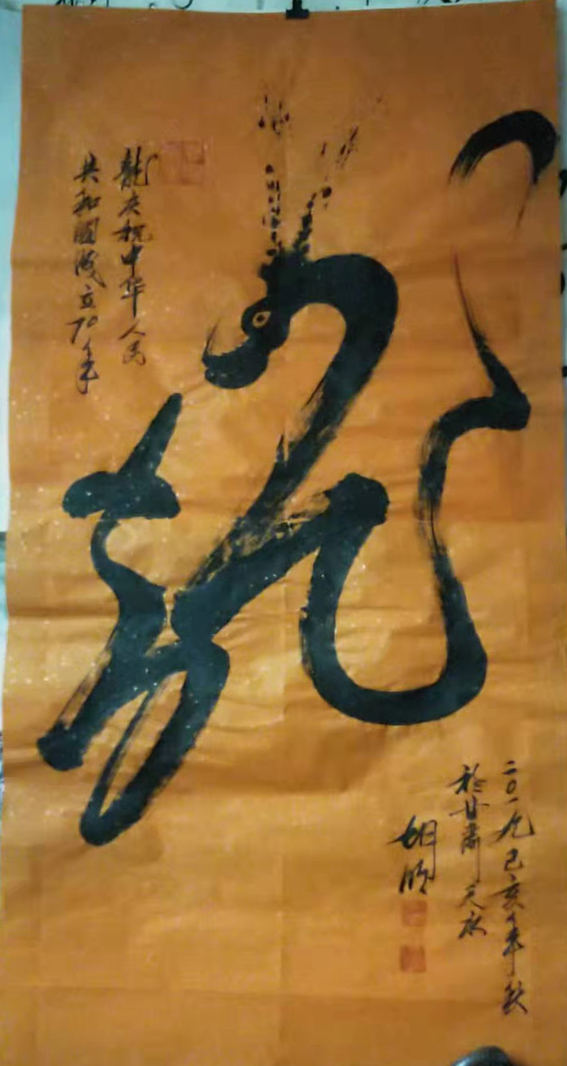 龍庆祝中华人民
共和國成立70年
龍
二〇一九己亥年秋
於甘肃天水